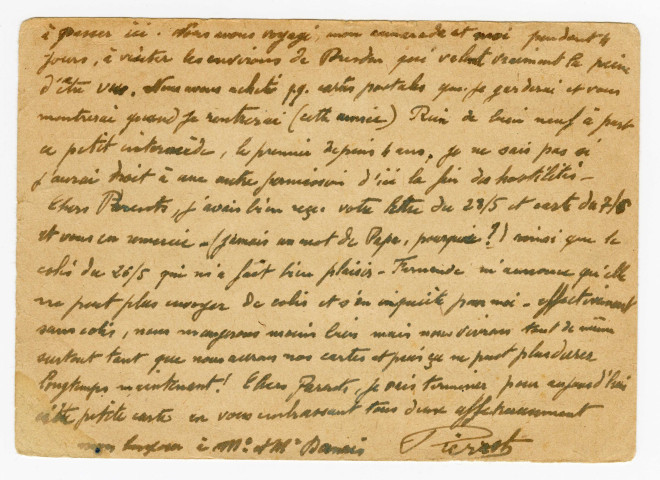 à passer ici. Nous avons voyagé, mon camarade et moi pendant 4
jours, à visiter les environs de Dresden qui valent vraiment la peine
d'être vus. Nous avons acheté qq. cartes postales que je garderai et vous
montrerai quand je rentrerai (cette année) Rien de bien neuf à part
ce petit intermède, le premier depuis 4 ans, je ne sais pas si
j'aurai droit à une autre permission d'ici la fin des hostilités -
Chers Parents, j'avais bien reçu votre lettre du 28/5 et carte du 7/6
et vous en remercie - (jamais un mot de Papa, pourquoi?) ainsi que le
colis du 26/5 qui m'a fait bien plaisir - Fernande m'annonce qu'elle
ne peut plus envoyer de colis et s'en inquiète pour moi - effectivement
sans colis, nous mangerons moins bien mais nous vivrons tout de même
surtout tant que nous aurons nos cartes et puis ça ne peut plus durer
longtemps maintenant! Chers Parents, je vais terminer pour aujourd'hui
cette petite carte en vous embrassant tous deux affectueusement
mon bonjour à Mr. et Me
Pierrot